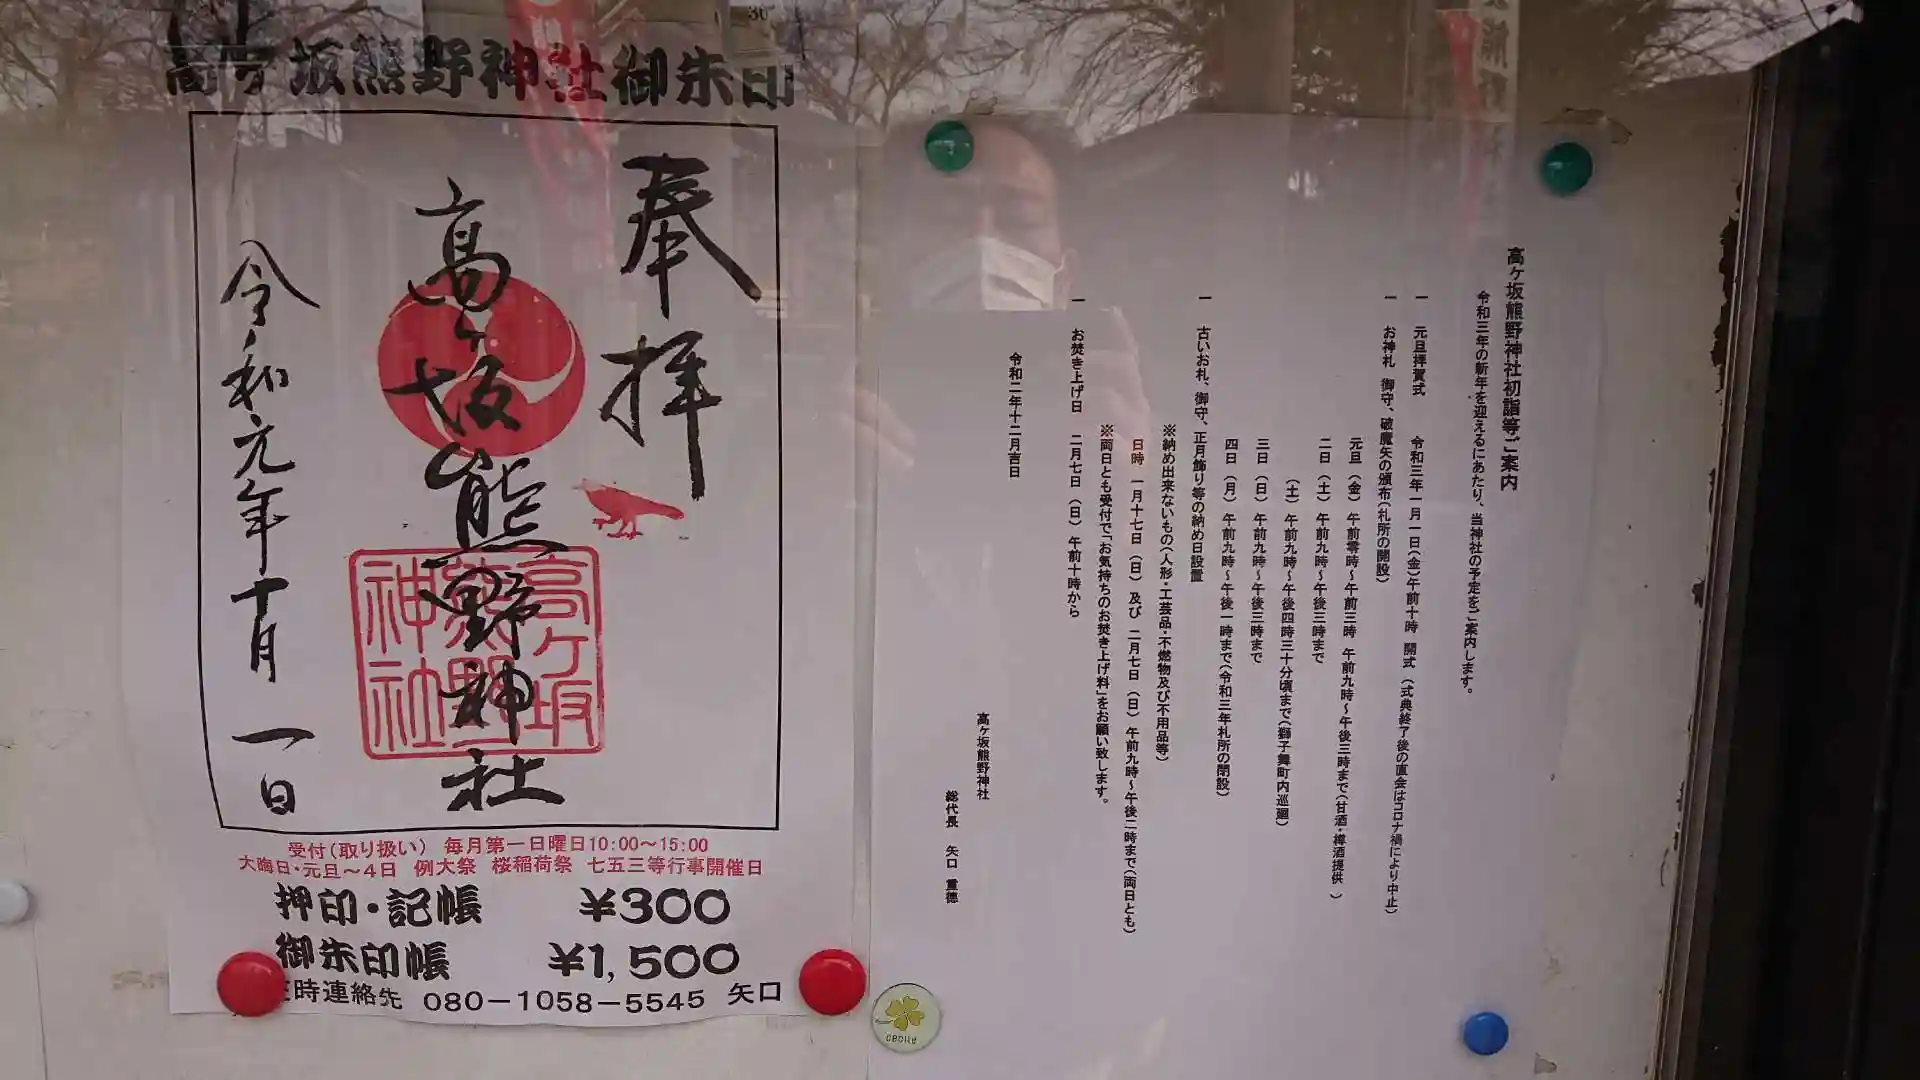 高ヶ坂熊野神社御朱印
奉拝
高ヶ坂熊野神社
令和元年十月一日
高ヶ坂
熊野
神社
受付(取り扱い) 毎月第一日曜日10:00〜15:00
大晦日・元旦〜4日 例大祭 桜稲荷祭 七五三等行事開催日
押印・記帳 ¥300
御朱印帳 ¥1,500
時連絡先 080-1058-5545 矢口
高ヶ坂熊野神社初詣等ご案内
令和三年の新年を迎えるにあたり、当神社の予定をご案内します。
一 元旦拝賀式 令和三年一月一日(金)午前十時 開式 (式典終了後の直会はコロナ禍により中止)
一 お神札 御守、破魔矢の頒布(札所の開設)
元旦(金) 午前零時〜午前三時 午前九時〜午後三時まで(甘酒・樽酒提供 )
二日(土) 午前九時〜午後三時まで
(土) 午前九時〜午後四時三十分頃まで(獅子舞町内巡廻)
三日(日) 午前九時〜午後三時まで
四日(月) 午前九時〜午後一時まで(令和三年札所の閉設)
一 古いお札、御守、正月飾り等の納め日設置
※納め出来ないもの(人形・工芸品・不燃物及び不用品等)
日時 一月十七日(日)及び 二月七日(日)午前九時〜午後二時まで(両日とも)
※両日とも受付で「お気持ちのお焚き上げ料」をお願い致します。
一 お焚き上げ日 二月七日(日)午前十時から
令和二年十二月吉日
高ヶ坂熊野神社
総代長 矢口 重徳